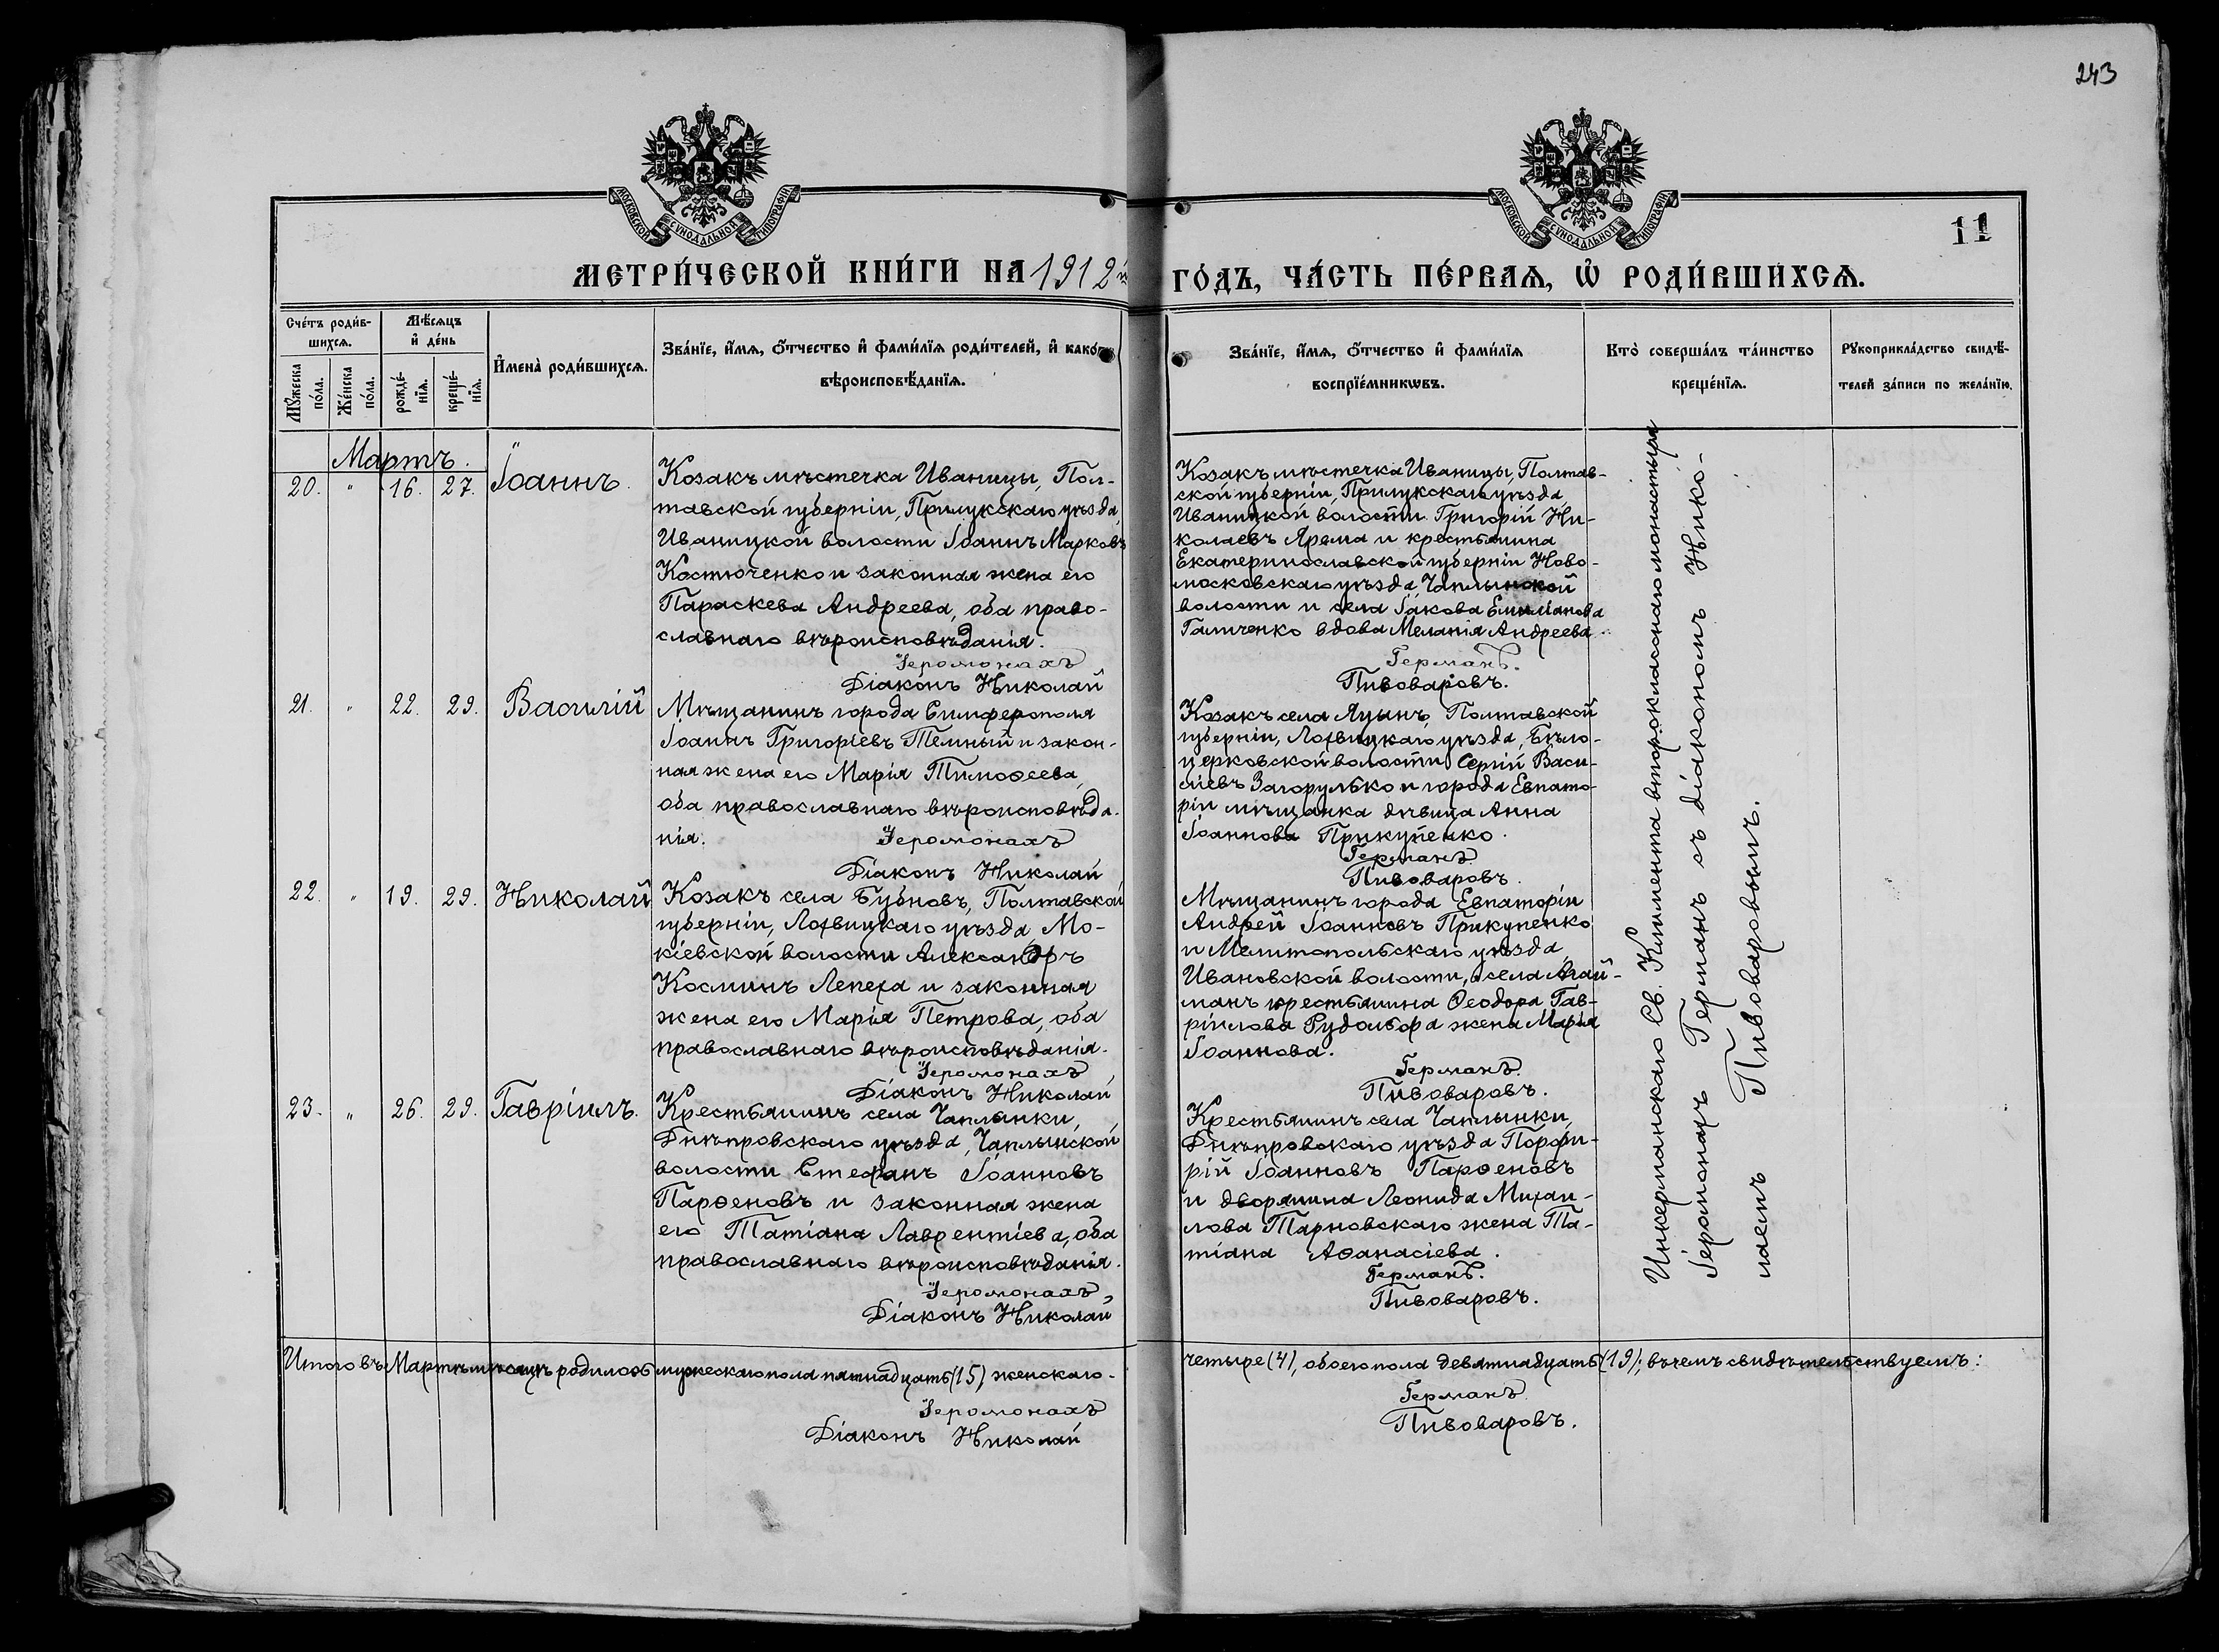 243
МОСКОВСКОЙ СѴНОДАЛЬНОЙ ТИПОГРАФІИ
МОСКОВСКОЙ СѴНОДАЛЬНОЙ ТИПОГРАФІИ
11
МЕТРИ́ЧЕСКОЙ КНИ́ГИ НА 1912й
ГО́ДЪ, ЧА́СТЬ ПЕ́РВАѦ, Ѡ҆ РОДИ́ВШИХСѦ.
Сче́тъ роди́в-
шихсѧ.
Мꙋ́жеска
по́ла.
Же́нска
по́ла.
Мѣ́сѧцъ
и҆ де́нь
рожде́-
нїѧ.
креще́-
нїѧ.
И҆мена̀ роди́вшихсѧ.
Зва́нїе, и҆́мѧ, ѻ҆́тчество и҆ фами́лїѧ роди́телей, и҆ како́гѡ
вѣроисповѣ́данїѧ.
Зва́нїе, и҆́мѧ, ѻ҆́тчество и҆ фами́лїѧ
воспрїе́мникѡвъ.
Кто̀ соверша́лъ та́инство
креще́нїѧ.
Рꙋкоприкла́дство свидѣ́-
телей за́писи по жела́нїю.
Мартъ.
20. " 16. 27. Іоаннъ.
Козакъ мѣстечка Иваницы, Пол-
тавской губерніи, Прилукскаго уѣзда,
Иваницкой волости Іоаннъ Марковъ
Костюченко и законная жена его
Параскева Андреева, оба право-
славнаго вѣроисповѣданія.
Іеромонахъ
Діаконъ Николай
Козакъ мѣстечка Иваницы, Полтав-
ской губерніи, Прилукскаго уѣзда,
Иваницкой волости Григорій Ни-
колаевъ Ярема и крестьянина
Екатеринославской губерніи Ново-
московскаго уѣзда, Чаплынской
волости и села Іакова Емиліанова
Галиченко вдова Меланія Андреева.
Германъ.
Пивоваровъ.
21. " 22. 29. Василій
Мѣщанинъ города Симферополя
Іоаннъ Григоріевъ Темный и закон-
ная жена его Марія Тимоѳеева,
оба православнаго вѣроисповѣда-
нія.
Іеромонахъ
Діаконъ Николай
Козакъ села Яцынъ, Полтавской
губерніи, Лохвицкаго уѣзда, Бѣло-
церковской волости Сергій Васи-
ліевъ Загорулько и города Евпато-
ріи мѣщанка дѣвица Анна
Іоаннова Прикупенко.
Германъ.
Пивоваровъ.
22. " 19. 29. Николай
Козакъ села Бубновъ, Полтавской
губерніи, Лохвицкаго уѣзда, Мо-
кіевской волости Александръ
Косминъ Лепеха и законная
жена его Марія Петрова, оба
православнаго вѣроисповѣданія.
Іеромонахъ
Діаконъ Николай
Мѣщанинъ города Евпаторіи
Андрей Іоанновъ Прикупенко
и Мелитопольскаго уѣзда,
Ивановской волости, села Агай-
манъ крестьянина Ѳеодора Гав-
ріилова Рудольфа жена Марія
Іоаннова.
Германъ.
Пивоваровъ.
23. " 26. 29. Гавріилъ.
Крестьянинъ села Чаплынки,
Днѣпровскаго уѣзда, Чаплынской
волости Стефанъ Іоанновъ
Парѳеновъ и законная жена
его Татіана Лаврентіева, оба
православнаго вѣроисповѣданія.
Іеромонахъ
Діаконъ Николай
Крестьянинъ села Чаплынки,
Днѣпровскаго уѣзда Порфи-
рій Іоанновъ Парѳеновъ
и дворянина Леонида Михаи-
лова Тарновскаго жена Та-
тіана Аѳанасіева.
Германъ.
Пивоваровъ.
Инкерманскаго Св. Климента второкласснаго монастыря
Іеромонахъ Германъ съ діакономъ Нико-
лаемъ Пивоваровымъ.
Итого въ Мартѣ мѣсяцѣ родилось мужескаго пола пятнадцать (15), женскаго-
четыре (4), обоего пола девятнадцать (19); въ чемъ свидѣтельствуемъ:
Іеромонахъ Германъ
Діаконъ Николай Пивоваровъ.